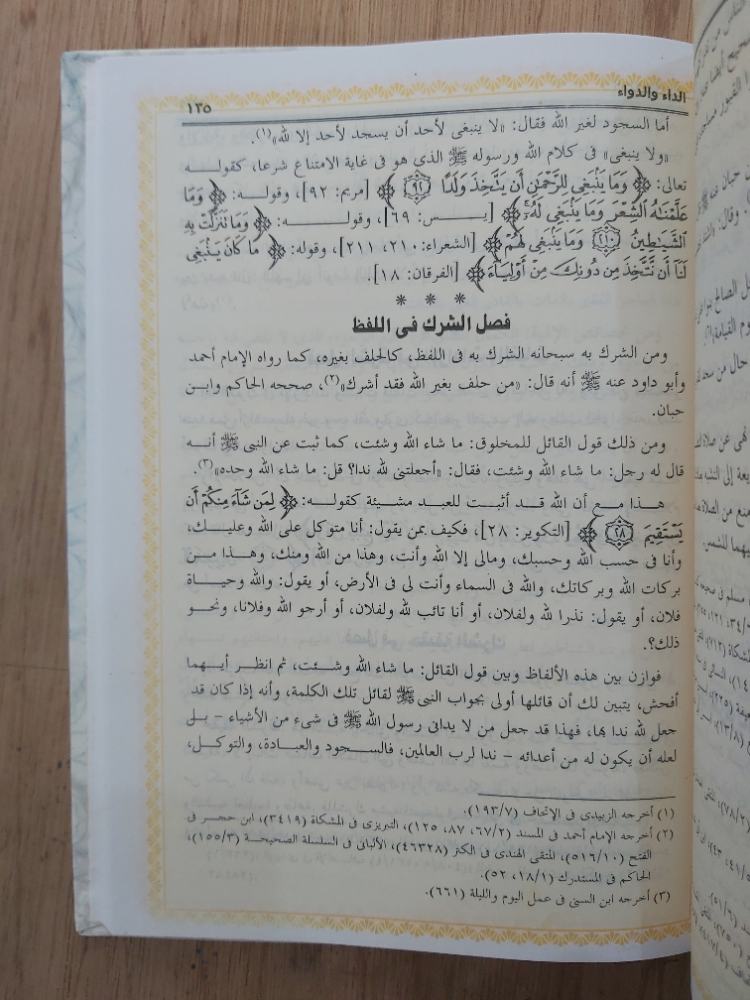 الداء والدواء
١٣٥
أما السجود لغير الله فقال: «لا ينبغى لأحد أن يسجد لأحد إلا لله»(١).
«ولا ينبغى» فى كلام الله ورسوله ﷺ الذى هو فى غاية الامتناع شرعا، كقولـــه
تعالى: ﴿وَمَا يَنۢبَغِى لِلرَّحْمَٰنِ أَن يَتَّخِذَ وَلَدًا ۝٩٢﴾ [مريم: ٩٢]، وقوله: ﴿وَمَا
عَلَّمْنَٰهُ ٱلشِّعْرَ وَمَا يَنۢبَغِى لَهُۥٓ﴾ [يــس: ٦٩]، وقولـــه: ﴿وَمَا تَنَزَّلَتْ بِهِ
ٱلشَّيَٰطِينُ ۝٢١٠ وَمَا يَنۢبَغِى لَهُمْ﴾ [الشعراء: ٢١٠، ٢١١]، وقوله: ﴿مَا كَانَ يَنۢبَغِى
لَنَآ أَن نَّتَّخِذَ مِن دُونِكَ مِنْ أَوْلِيَآءَ﴾ [الفرقان: ١٨].
* * *
فصل الشرك فى اللفظ
ومن الشرك به سبحانه الشرك به فى اللفظ، كالحلف بغيره، كما رواه الإمام أحمد
وأبو داود عنه ﷺ أنه قال: «من حلف بغير الله فقد أشرك»(٢)، صححه الحاكم وابـن
حبان.
ومن ذلك قول القائل للمخلوق: ما شاء الله وشئت، كما ثبت عن النبى ﷺ أنـه
قال له رجل: ما شاء الله وشئت، فقال: «أجعلتنى لله ندا؟ قل: ما شاء الله وحده»(٣).
هـذا مـع أن الله قـد أثبـت للعبد مشـيئة كقولـه: ﴿لِمَن شَآءَ مِنكُمْ أَن
يَسْتَقِيمَ ۝٢٨﴾ [التكوير: ٢٨]، فكيف بمن يقول: أنا متوكل على الله وعليـك،
وأنا فى حسب الله وحسبك، ومالى إلا الله وأنت، وهذا من الله ومنك، وهـذا مـن
بركات الله وبركاتك، والله فى السماء وأنت لى فى الأرض، أو يقول: والله وحيـاة
فلان، أو يقول: نذرا لله ولفلان، أو أنا تائب لله ولفلان، أو أرجو الله وفلانا، ونحـو
ذلك؟.
فوازن بين هذه الألفاظ وبين قول القائل: ما شاء الله وشـئت، ثم انظـر أيـهما
أفحش، يتبين لك أن قائلها أولى بجواب النبى ﷺ لقائل تلك الكلمة، وأنه إذا كان قد
جعل لله ندا بها، فهذا قد جعل من لا يدانى رسول الله ﷺ فى شىء من الأشياء – بـلى
لعله أن يكون له من أعدائه – ندا لرب العالمين، فالسـجود والعبـادة، والتوكـل،
(١) أخرجه الزبيدى فى الإتحاف (١٩٣/٧).
(٢) أخرجه الإمام أحمد فى المسند (٦٧/٢، ٨٧، ١٢٥)، التبريزى فى المشكاة (٣٤١٩)، ابن حجـر فى
الفتح (٥١٦/١٠)، المتقى الهندى فى الكنز (٤٦٣٢٨)، الألبانى فى السلسلة الصحيحـة (١٥٥/٣)،
الحاكم فى المستدرك (١٨/١، ٥٢).
(٣) أخرجه ابن السنى فى عمل اليوم والليلة (٦٦١).